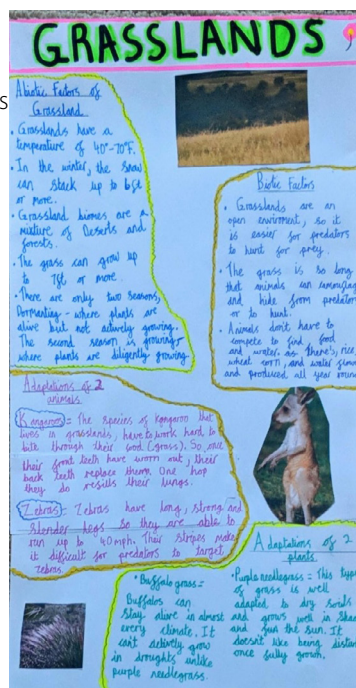 GRASSLANDS
s
Abiotic Factors of
Grassland
• Grasslands have a
temperature of 40°-70°F.
• In the winter, the snow
can stack up to 6ft
or more.
• Grassland biomes are a
mixture of Deserts and
forests.
• The grass can grow up
to 7ft or more.
• There are only two seasons,
Dormanting - where plants are
alive but not actively growing.
The second season is growing,
where plants are diligently growing.
Biotic Factors
• Grasslands are an
open enviroment, so it
is easier for predators
to hunt for prey.
• The grass is so long
that animals can
and hide from predator
or to hunt.
• Animals don't have to
compete to find food
and water as there's, rice
wheat corn, and water
and produced all year
Adaptations of 2
animals.
Kangaroos = The species of Kangaroo that
lives in grasslands, have to work hard to
bite through their food (grass). So, once
their front teeth have worn out, their
back teeth replace them. One hop
they do refills their lungs.
Zebras = Zebras have long, strong and
slender legs so they are able to
run up to 40mph. Their stripes make
it difficult for predators to target
zebras.
Adaptations of 2
plants.
• Buffalo grass =
Buffalos can
stay alive in almost
every climate. It
can't actively grow
in droughts unlike
purple needlegrass.
• Purple needlegrass = This type
of grass is well
adapted to dry soils
and grows well in
and the sun. It
doesn't like being
once fully grown.